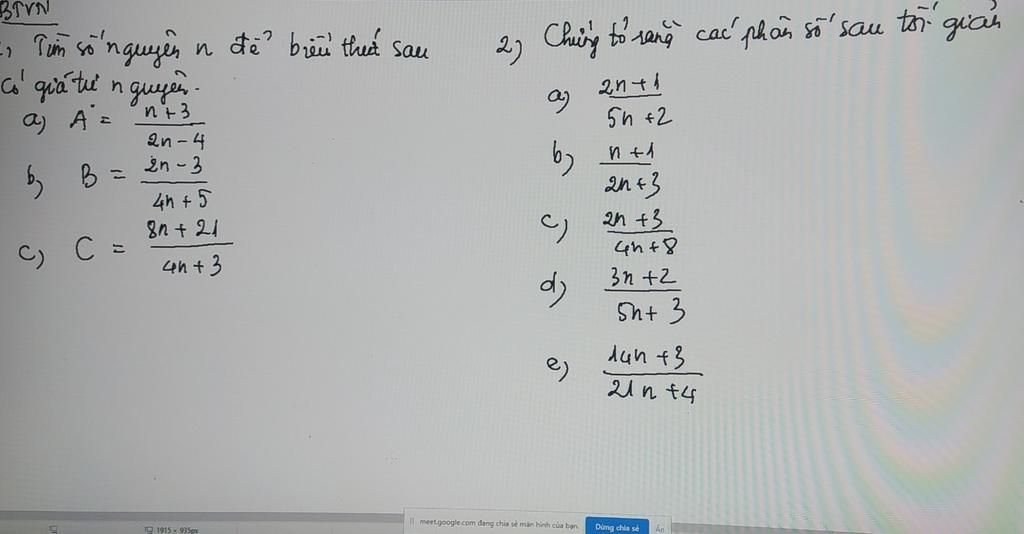 BTVN
1, Tìm số nguyên n để biểu thức sau
có giá trị nguyên.
a) A = n+3 / 2n-4
b) B = 2n-3 / 4n+5
c) C = 8n+21 / 4n+3
2) Chứng tỏ rằng các phân số sau tối giản
a) 2n+1 / 5n+2
b) n+1 / 2n+3
c) 2n+3 / 4n+8
d) 3n+2 / 5n+3
e) 14n+3 / 21n+4
1915 × 935px
meet.google.com đang chia sẻ màn hình của bạn. Dừng chia sẻ Ẩn